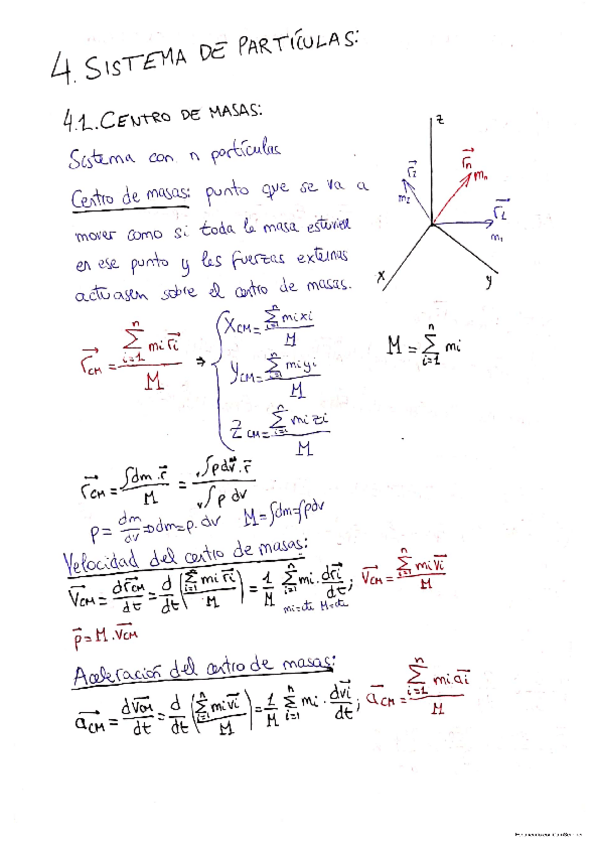 4. SISTEMA DE PARTÍCULAS:
4.1. CENTRO DE MASAS:
Sistema con n partículas
Centro de masas: punto que se va a
mover como si toda la masa estuviese
en ese punto y las fuerzas externas
actuasen sobre el centro de masas.
z
r⃗2
m2
r⃗n
mn
r⃗1
m1
x
y
r⃗CM = Σ(i=1→n) mi r⃗i / M ⇒ { XCM = Σ(i=1→n) mi xi / M
YCM = Σ(i=1→n) mi yi / M
ZCM = Σ(i=1→n) mi zi / M
M = Σ(i=1→n) mi
r⃗CM = ∫dm·r⃗ / M = v∫ρdv·r⃗ / v∫ρ dv
ρ = dm/dv ⇒ dm = ρ·dv M = ∫dm = ∫ρdv
Velocidad del centro de masas:
V⃗CM = dr⃗CM/dt = d/dt (Σ(i=1→n) mi r⃗i / M) = 1/M Σ(i=1→n) mi · dr⃗i/dt ; V⃗CM = Σ(i=1→n) mi v⃗i / M
mi=cte M=cte
p⃗ = M·V⃗CM
Aceleración del centro de masas:
a⃗CM = dV⃗CM/dt = d/dt (Σ(i=1→n) mi v⃗i / M) = 1/M Σ(i=1→n) mi · dv⃗i/dt ; a⃗CM = Σ(i=1→n) mi·a⃗i / M